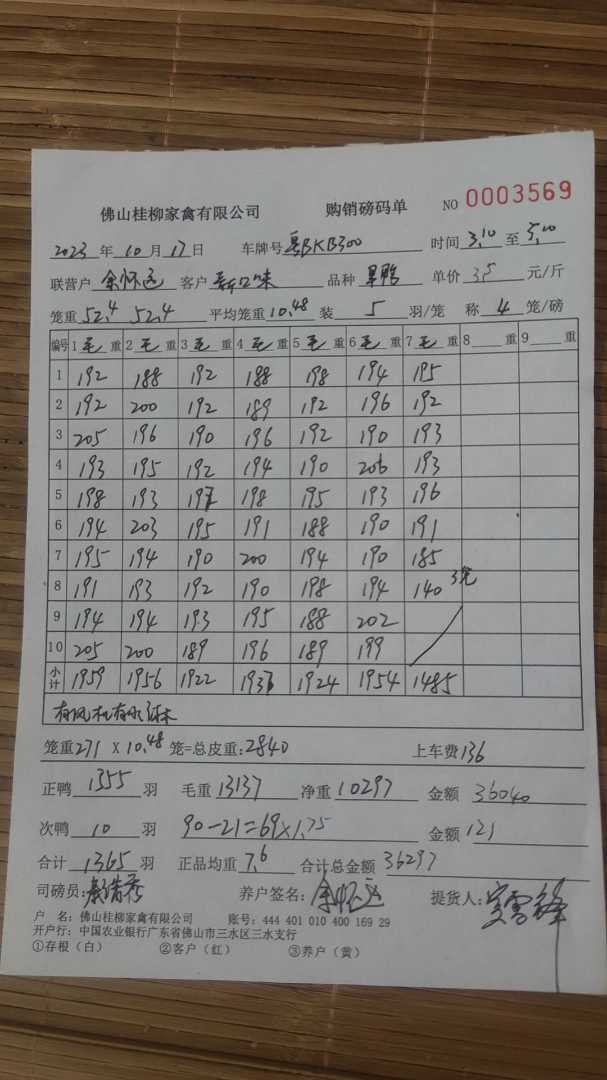 佛山桂柳家禽有限公司 购销磅码单 NO 0003569
2023 年 10 月 17 日 车牌号 粤BKB300 时间 3.10 至 5.00
联营户 余怀远 客户 新口味 品种 单价 3.5 元/斤
笼重 52.4 52.4 平均笼重 10.48 装 5 羽/笼 称 4 笼/磅
编号 1 毛 重 2 毛 重 3 毛 重 4 毛 重 5 毛 重 6 毛 重 7 毛 重 8 重 9 重
1 192 188 192 188 198 194 195
2 192 200 192 189 192 196 192
3 205 196 190 196 192 190 193
4 193 195 192 194 190 206 193
5 198 193 197 198 195 193 196
6 194 203 195 191 188 190 191
7 195 194 190 200 194 190 185
8 191 193 192 190 198 194 140 3笼
9 194 194 193 195 188 202
10 205 200 189 196 189 199
小计 1959 1956 1922 1937 1924 1954 1485
有风机有水
笼重 271 X 10.48 笼=总皮重: 2840 上车费 136
正鸭 1355 羽 毛重 13137 净重 10297 金额 36040
次鸭 10 羽 90-21=69×1.75 金额 121
合计 1365 羽 正品均重 7.6 合计总金额 36297
司磅员: 养户签名: 余怀远 提货人:
户 名: 佛山桂柳家禽有限公司 账号: 444 401 010 400 169 29
开户行: 中国农业银行广东省佛山市三水区三水支行
①存根（白） ②客户（红） ③养户（黄）